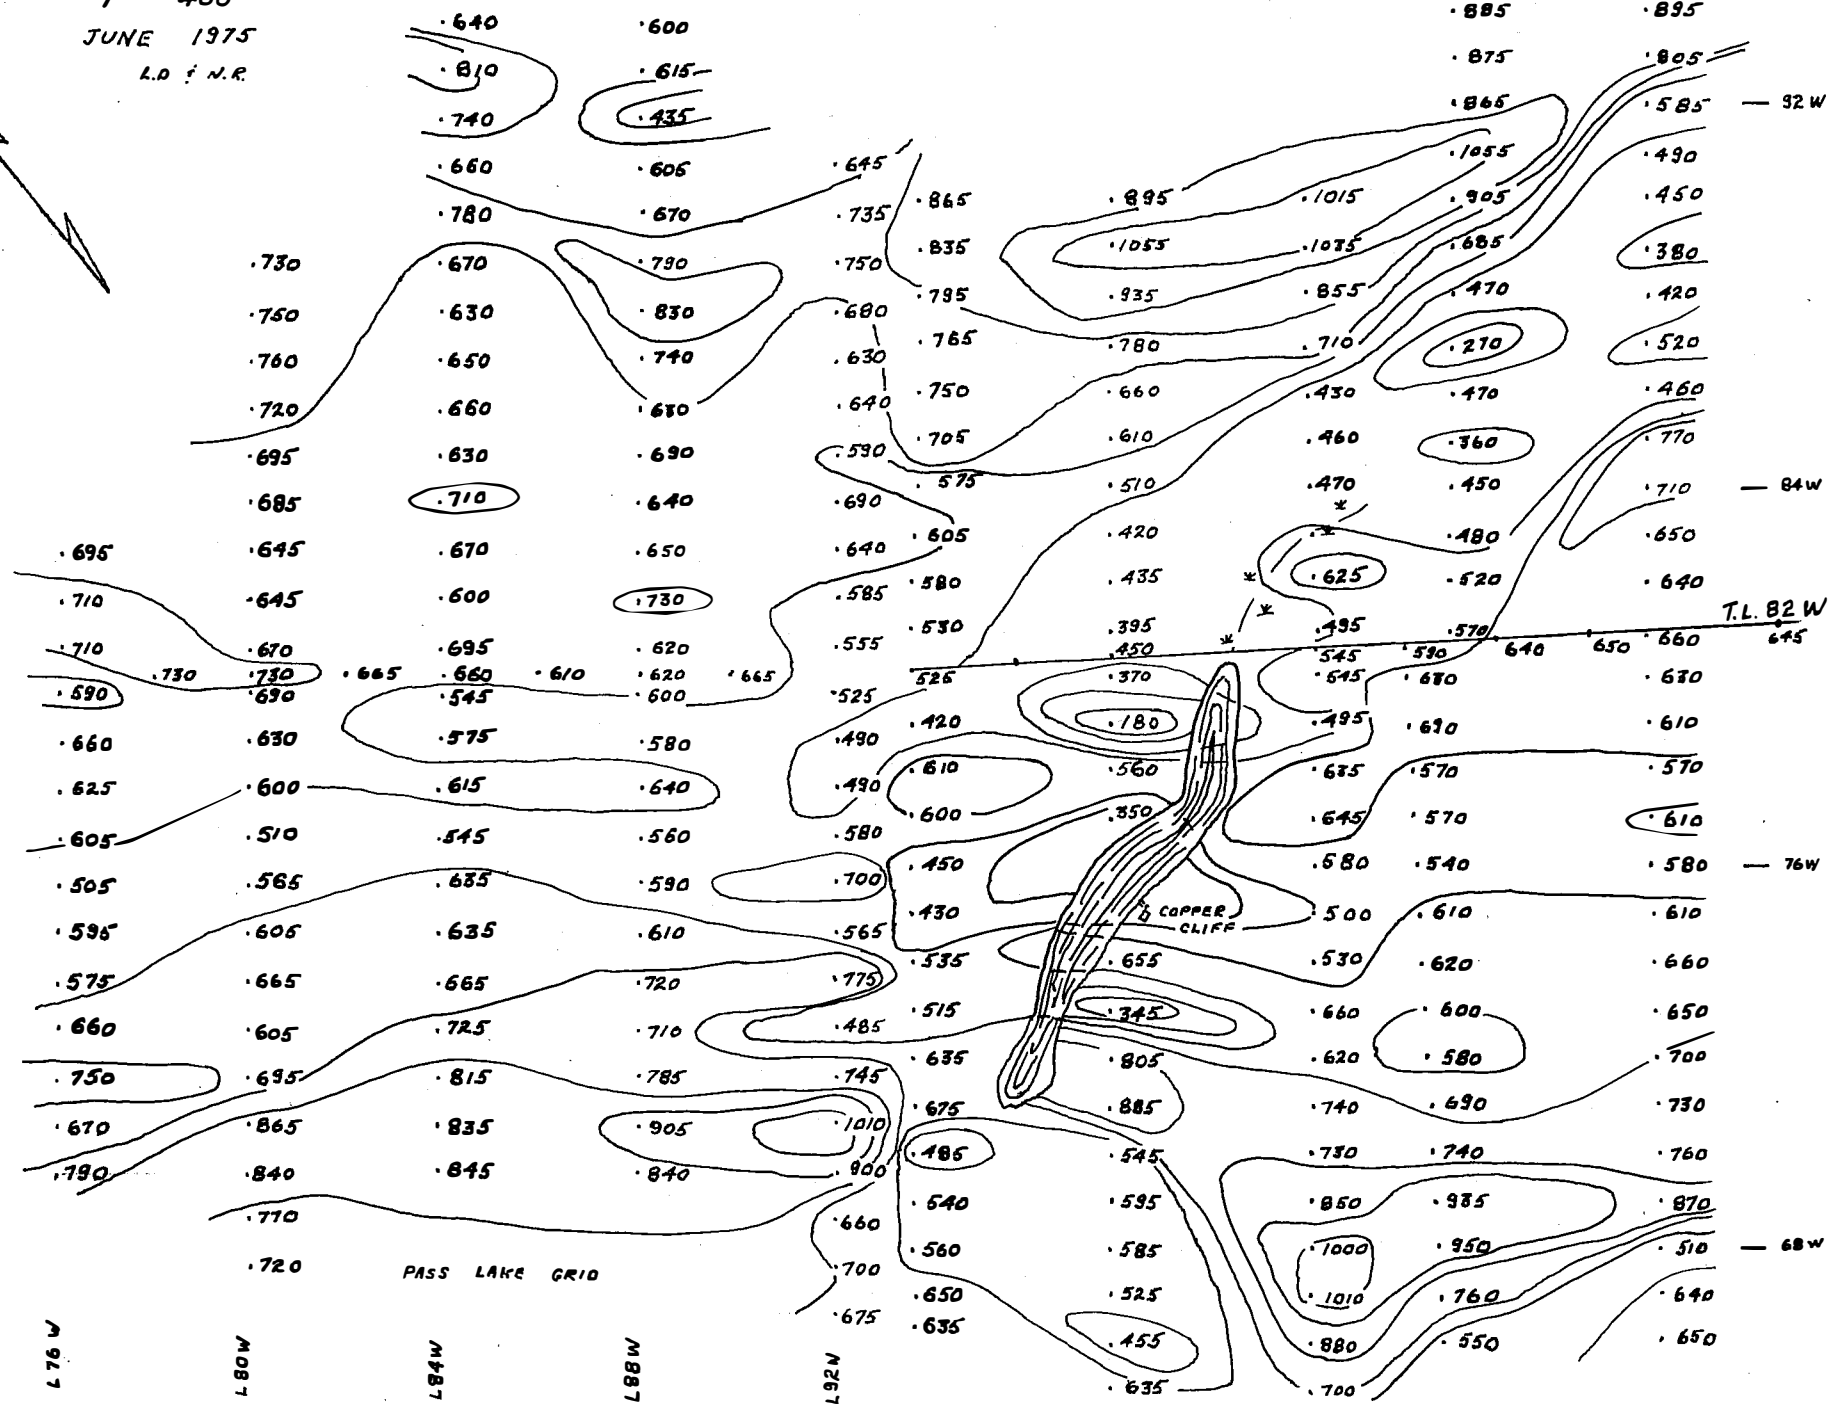 JUNE 1975
L.D & N.R.
.640 .600 .885 .895
.810 .615 .875 .805
.740 .435 .865 .585 — 92W
.660 .605 .645 .1055 .490
.780 .670 .735 .865 .895 .1015 .905 .450
.730 .670 .790 .750 .835 .1055 .1035 .685 .380
.750 .630 .830 .680 .795 .935 .855 .470 .420
.760 .650 .740 .630 .765 .780 .710 .270 .520
.720 .660 .630 .640 .750 .660 .430 .470 .460
.695 .630 .690 .590 .705 .610 .460 .360 .770
.685 .710 .640 .690 .575 .510 .470 .450 .710 — 84W
.695 .645 .670 .650 .640 .605 .420 .480 .650
.710 .645 .600 .730 .585 .580 .435 .625 .520 .640
T.L. 82W
.710 .670 .695 .620 .555 .530 .395 .495 .570 .660
.450 .545 .590 640 650 645
.730 .730 .665 .660 .610 .620 .665 525 .370 .545 .630 .630
.590 .690 .545 .600 .525
.660 .630 .575 .580 .490 .420 .180 .495 .690 .610
.625 .600 .615 .640 .490 .610 .560 .635 .570 .570
.605 .510 .545 .560 .580 .600 .350 .645 .570 .610
.505 .565 .635 .590 .700 .450 .580 .540 .580 — 76W
.595 .605 .635 .610 .565 .430 COPPER .500 .610 .610
CLIFF
.575 .665 .665 .720 .775 .535 .655 .530 .620 .660
.660 .605 .725 .710 .485 .515 .345 .660 .600 .650
.750 .695 .815 .785 .745 .635 .805 .620 .580 .700
.670 .865 .835 .905 .1010 .675 .885 .740 .690 .730
.790 .840 .845 .840 .900 .485 .545 .730 .740 .760
.770 .660 .540 .595 .850 .935 .870
.720 PASS LAKE GRID .700 .560 .585 .1000 .950 .510 — 68W
.675 .650 .525 .1010 .760 .640
.635 .455 .880 .550 .650
.635 .700
L76W L80W L84W L88W L92W